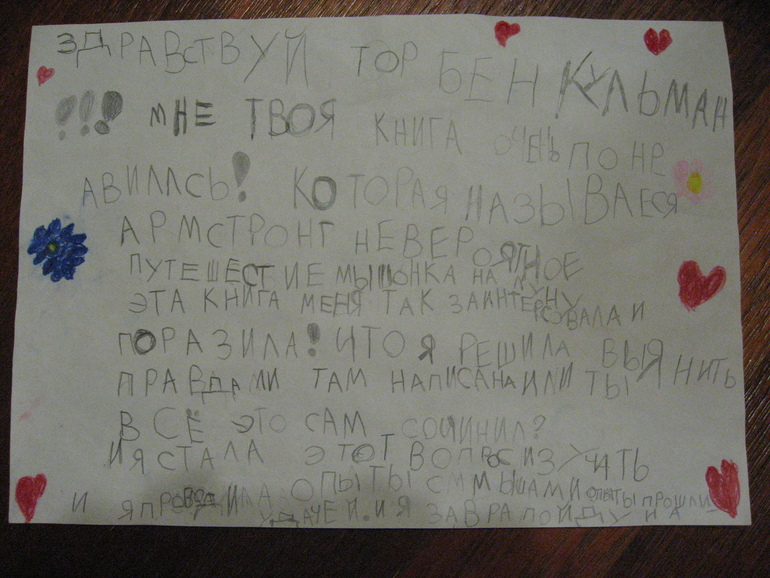 ЗДРАВСТВУЙ ТОР БЕН КУЛЬМАН
!!! МНЕ ТВОЯ КНИГА ОЧЕНЬ ПОНЕ
АВИЛАСЬ! КОТОРАЯ НАЗЫВАЕСЯ
АРМСТРОНГ НЕВЕРОЯТНОЕ
ПУТЕШЕСТИЕ МЫШОНКА НА ЛУНУ
ЭТА КНИГА МЕНЯ ТАК ЗАИНТЕРСОВАЛА И
ПОРАЗИЛА! ЧТО Я РЕШИЛА ВЫЯНИТЬ
ПРАВДА МИ ТАМ НАПИСАНА ИЛИ ТЫ
ВСЁ ЭТО САМ СОЧИНИЛ?
И Я СТАЛА ЭТОТ ВОПРОС ИЗУЧИТЬ
И Я ПРОВОДИЛА ОПЫТЫ С МЫШАМИ ОПЫТЫ ПРОШЛИ
УДАЧЕЙ. И Я ЗАВРА ПОЙДУ НА